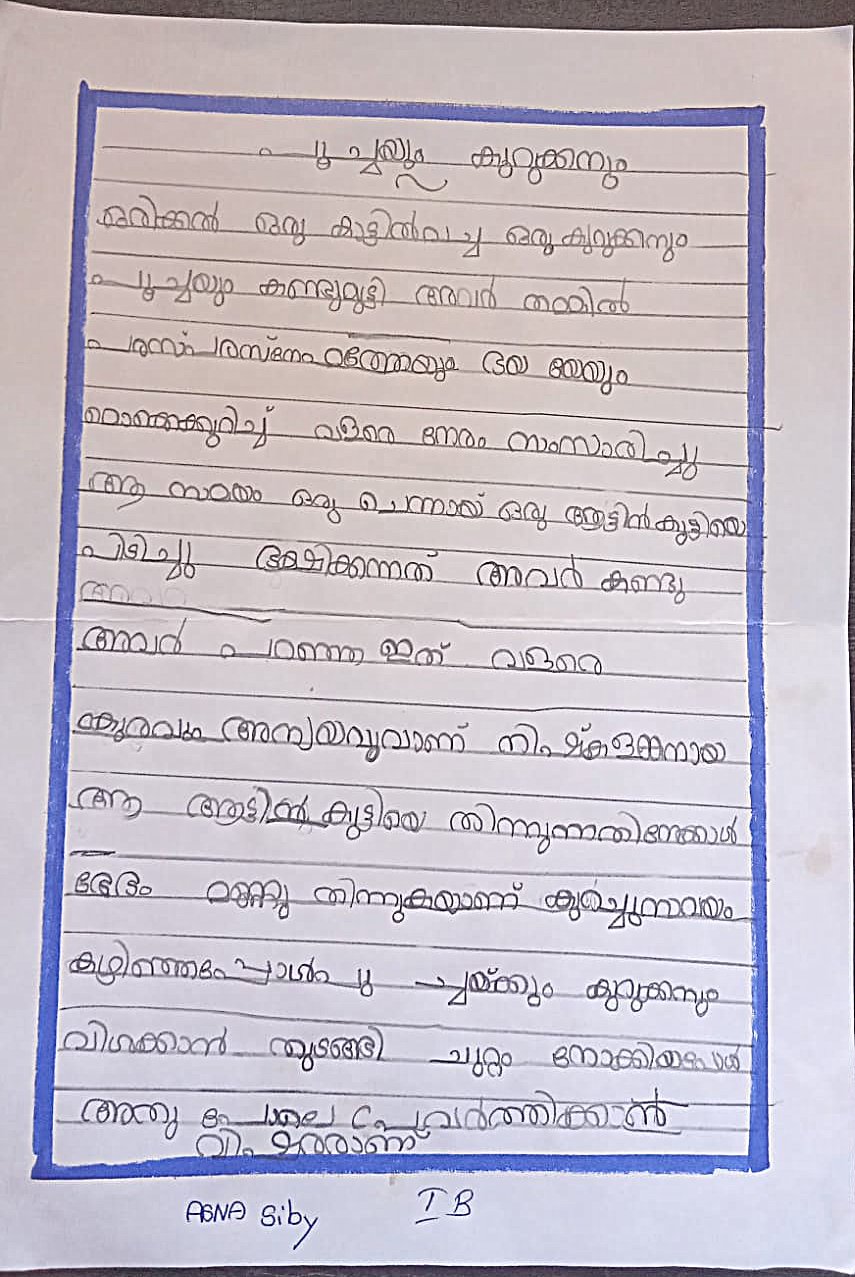 പൂച്ചയും കുറുക്കനും
ഒരിക്കൽ ഒരു കാട്ടിൽവച്ച് ഒരു കുറുക്കനും
പൂച്ചയും കണ്ടുമുട്ടി അവർ തമ്മിൽ
പരസ്പരസ്നേഹത്തേയും ദയയേയും
വളരെ നേരം സംസാരിച്ചു
ആ സമയം ഒരു ചെന്നായ് ഒരു ആട്ടിൻകുട്ടിയെ
പിടിച്ചു ഭക്ഷിക്കുന്നത് അവർ കണ്ടു
അവർ പറഞ്ഞു ഇത് വളരെ
ക്രൂരവും നിഷ്കളങ്കനായ
ആ ആട്ടിൻകുട്ടിയെ തിന്നുന്നതിനേക്കാൾ
ഭേദം മണ്ണു തിന്നുകയാണ് കുറച്ചുസമയം
കഴിഞ്ഞപ്പോൾ പൂച്ചയ്ക്കും കുറുക്കനും
വിശക്കാൻ തുടങ്ങി ചുറ്റും നോക്കിയപ്പോൾ
അതു പോലെ പ്രവർത്തിക്കാൻ
AGNA Siby I B